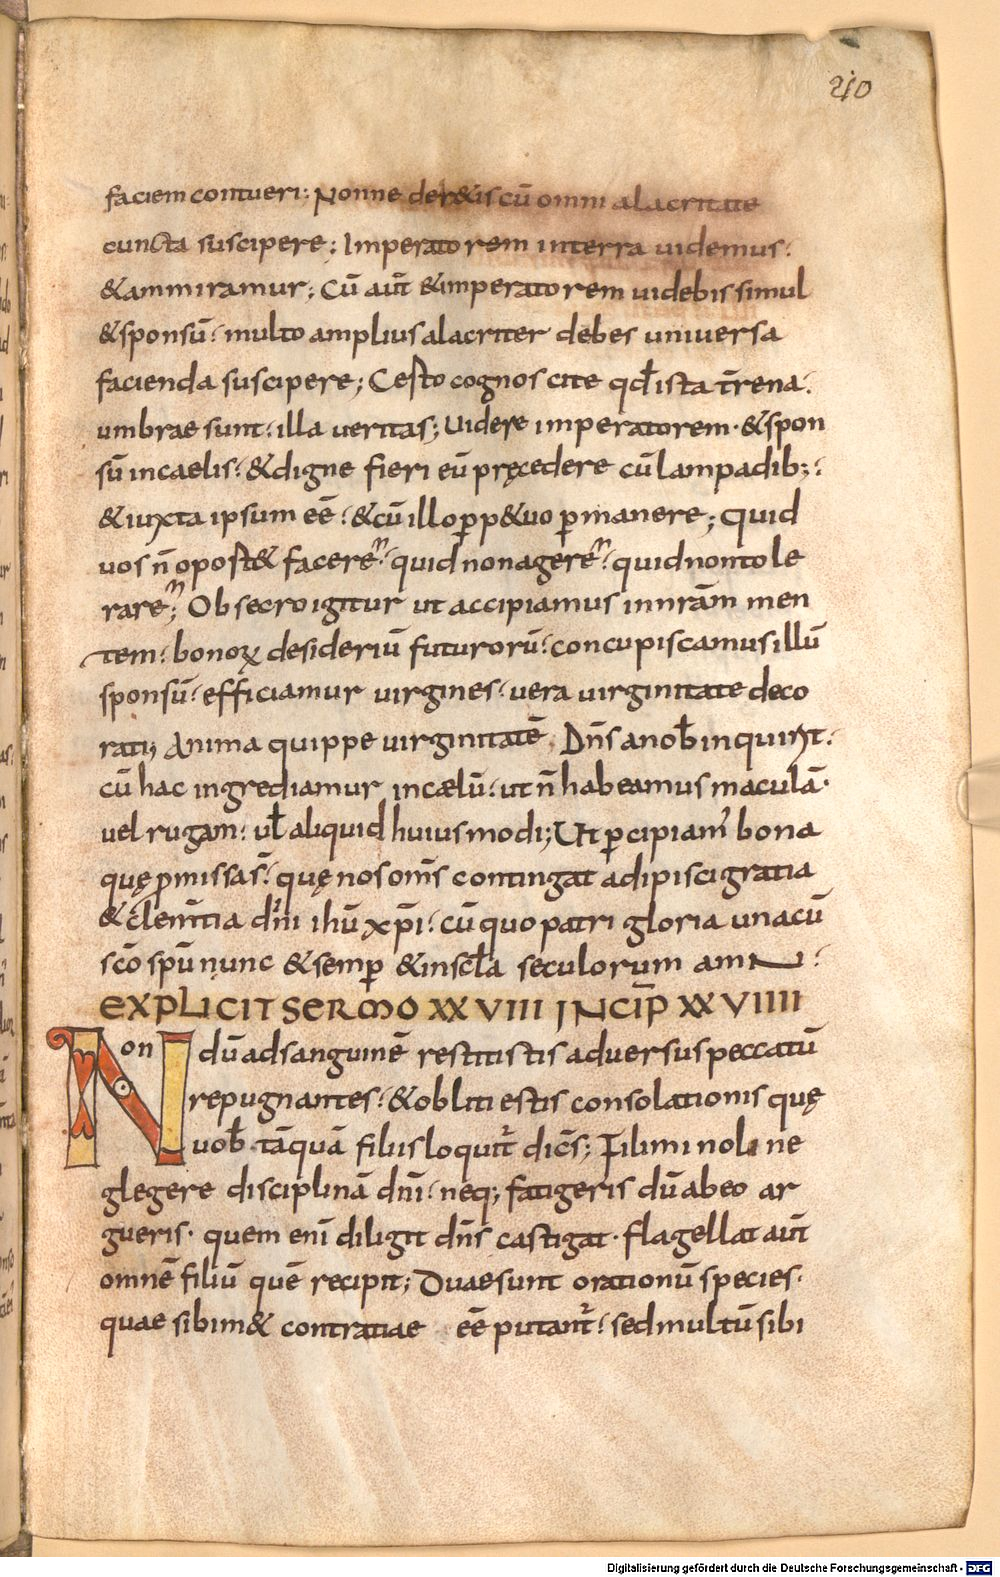 210
faciem contueri; Nonne der&is cū omni alacritate
cuncta suscipere; Imperatorem interra uidemus;
&ammiramur; Cū aūt &imperatorem uidebis simul
&sponsū; multo amplius alacriter debes uniuersa
facienda suscipere; Cesto cognoscite qđ ista t̄rena;
umbrae sunt; illa ueritas; Uidere imperatorem· &spon
sū incaelis; &digne fieri eū pręcedere cū lampadib;;
&iuxta ipsum eē; &cū illo ꝑp&uo ꝑmanere; Quid
uos n̄ oport& facere; quid non agere; quid nontole
rare; Obsecro igitur ut accipiamus innrām men
tem; bonoꝝ desideriū futurorū; concupiscamus illū
sponsū; efficiamur uirgines; uera uirginitate deco
rati; Anima quippe uirginitatē Dn̄s anob̄ inquirit;
cū hac ingrediamur incælū; ut n̄ habeamus maculā·
uel rugam; ul̄ aliquid huiusmodi; Ut ꝑcipiam' bona
quę ꝓmissas̄; quę nos om̄s contingat adipisci gratia
& clem̄tia dn̄i ihū xp̄i; cū quo patri gloria unacū
sc̄o spū nunc &semꝑ &inscl̄a seculorum amN;
EXPLICIT SERMO XXVIII INCIP̄ XXVIIII
Non dū adsanguinē restitistis aduersus peccatū
repugnantes; &obliti estis consolationis quę
uob̄ tāquā filiis loquit̄ dic̄s; Fili mi noli ne
glegere disciplinā dn̄i; neq; fatigeris dū abeo ar
gueris· quem eni diligit dn̄s castigat· flagellat aūt
omnē filiū quē recipit; Duae sunt orationū species·
quae sibim& contratiae eē putant̄; sed multū sibi
Digitalisierung gefördert durch die Deutsche Forschungsgemeinschaft - DFG